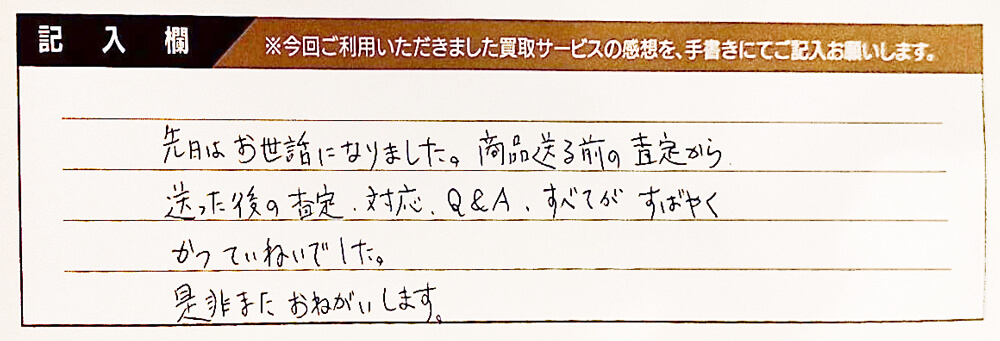 記入欄
※今回ご利用いただきました買取サービスの感想を、手書きにてご記入お願いします。
先日はお世話になりました。商品送る前の査定から
送った後の査定、対応、Q&A、すべてが すばやく
かつ ていねいでした。
是非また おねがいします。